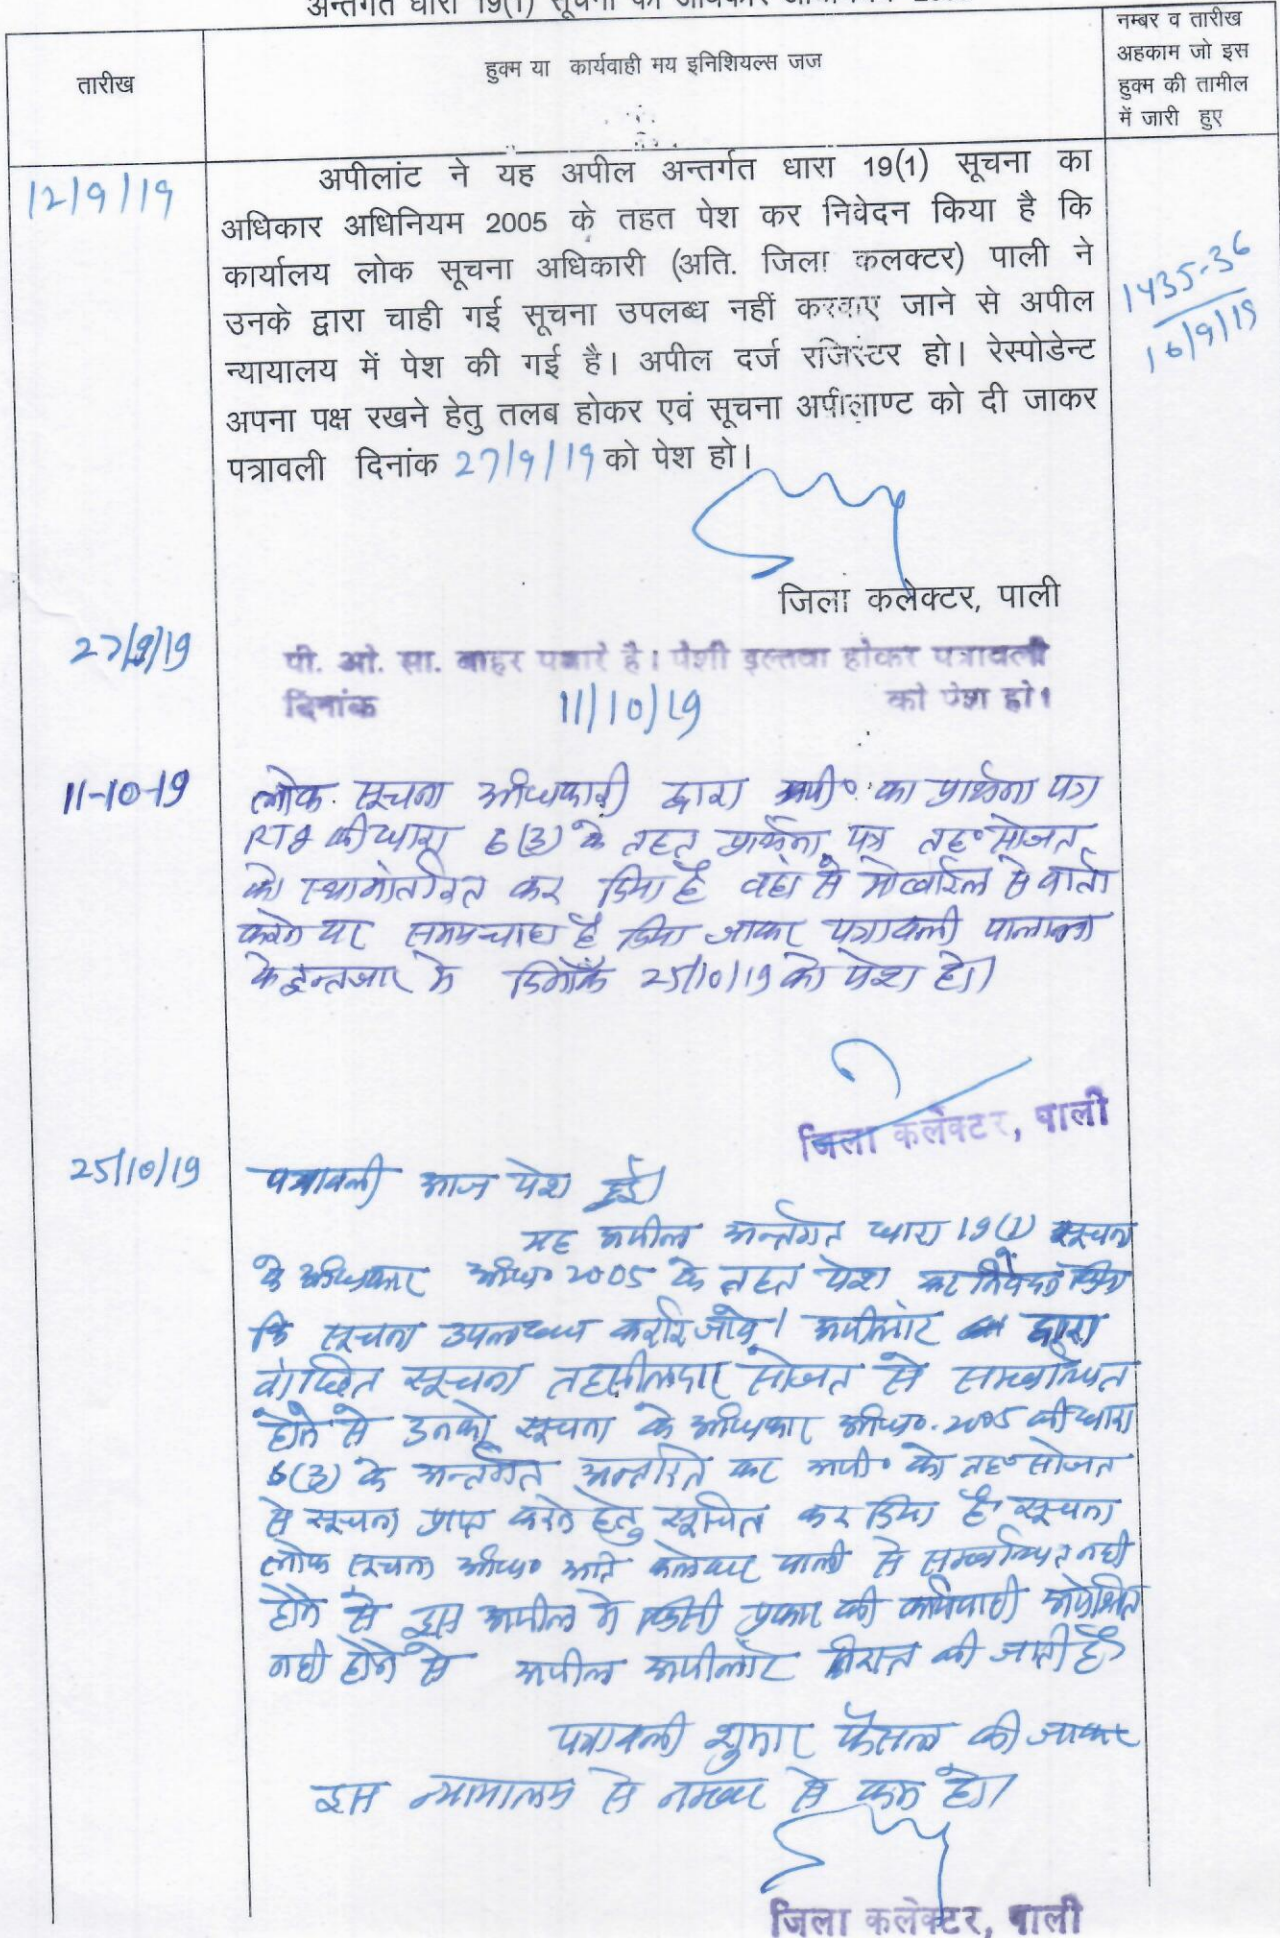 अन्तर्गत धारा 19(1) सूचना का अधिकार
तारीख
हुक्म या कार्यवाही मय इनिशियल्स जज
नम्बर व तारीख
अहकाम जो इस
हुक्म की तामील
में जारी हुए
12/9/19
अपीलांट ने यह अपील अन्तर्गत धारा 19(1) सूचना का
अधिकार अधिनियम 2005 के तहत पेश कर निवेदन किया है कि
कार्यालय लोक सूचना अधिकारी (अति. जिला कलक्टर) पाली ने
उनके द्वारा चाही गई सूचना उपलब्ध नहीं करवाए जाने से अपील
न्यायालय में पेश की गई है। अपील दर्ज रजिस्टर हो। रेस्पोडेन्ट
अपना पक्ष रखने हेतु तलब होकर एवं सूचना अपीलाण्ट को दी जाकर
पत्रावली दिनांक 27/9/19 को पेश हो।
1435-36
16/9/19
जिला कलेक्टर, पाली
27/9/19
पी. ओ. सा. बाहर पधारे है। पेशी इल्तवा होकर पत्रावली
दिनांक 11/10/19 को पेश हो।
11-10-19
लोक सूचना अधिकारी द्वारा अपी० का प्रार्थना पत्र
RTI की धारा 6(3) के तहत प्रार्थना पत्र तह० सोजत
को स्थानांतरित कर दिया है वहां से मोबाईल से वार्ता
करने पर समय चाहा है दिया जाकर पत्रावली पालना
के इन्तजार मे दिनांक 25/10/19 को पेश हो।
जिला कलेक्टर, पाली
25/10/19
पत्रावली आज पेश हुई।
यह अपील अन्तर्गत धारा 19(1) सूचना
के अधिकार अधि० 2005 के तहत पेश कर निवेदन किया
कि सूचना उपलब्ध कराई जावे। अपीलांट द्वारा
वांछित सूचना तहसीलदार सोजत से सम्बन्धित
होने से उनको सूचना के अधिकार अधि०. 2005 की धारा
6(3) के अन्तर्गत अन्तरित कर अपी० को तह० सोजत
से सूचना प्राप्त करने हेतु सूचित कर दिया है सूचना
लोक सूचना अधि० अति कलेक्टर पाली से सम्बन्धित नही
होने से इस अपील मे किसी प्रकार की कार्यवाही अपेक्षित
नही होने से अपील अपीलांट निरस्त की जाती है
पत्रावली शुमार फैसल की जाकर
इस न्यायालय से नम्बर से कम हो।
जिला कलेक्टर, पाली